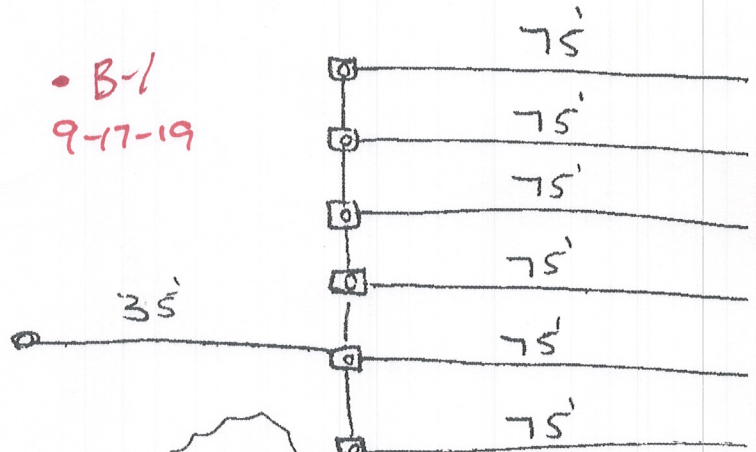 75'
• B-1
9-17-19
75'
75'
75'
35'
75'
75'